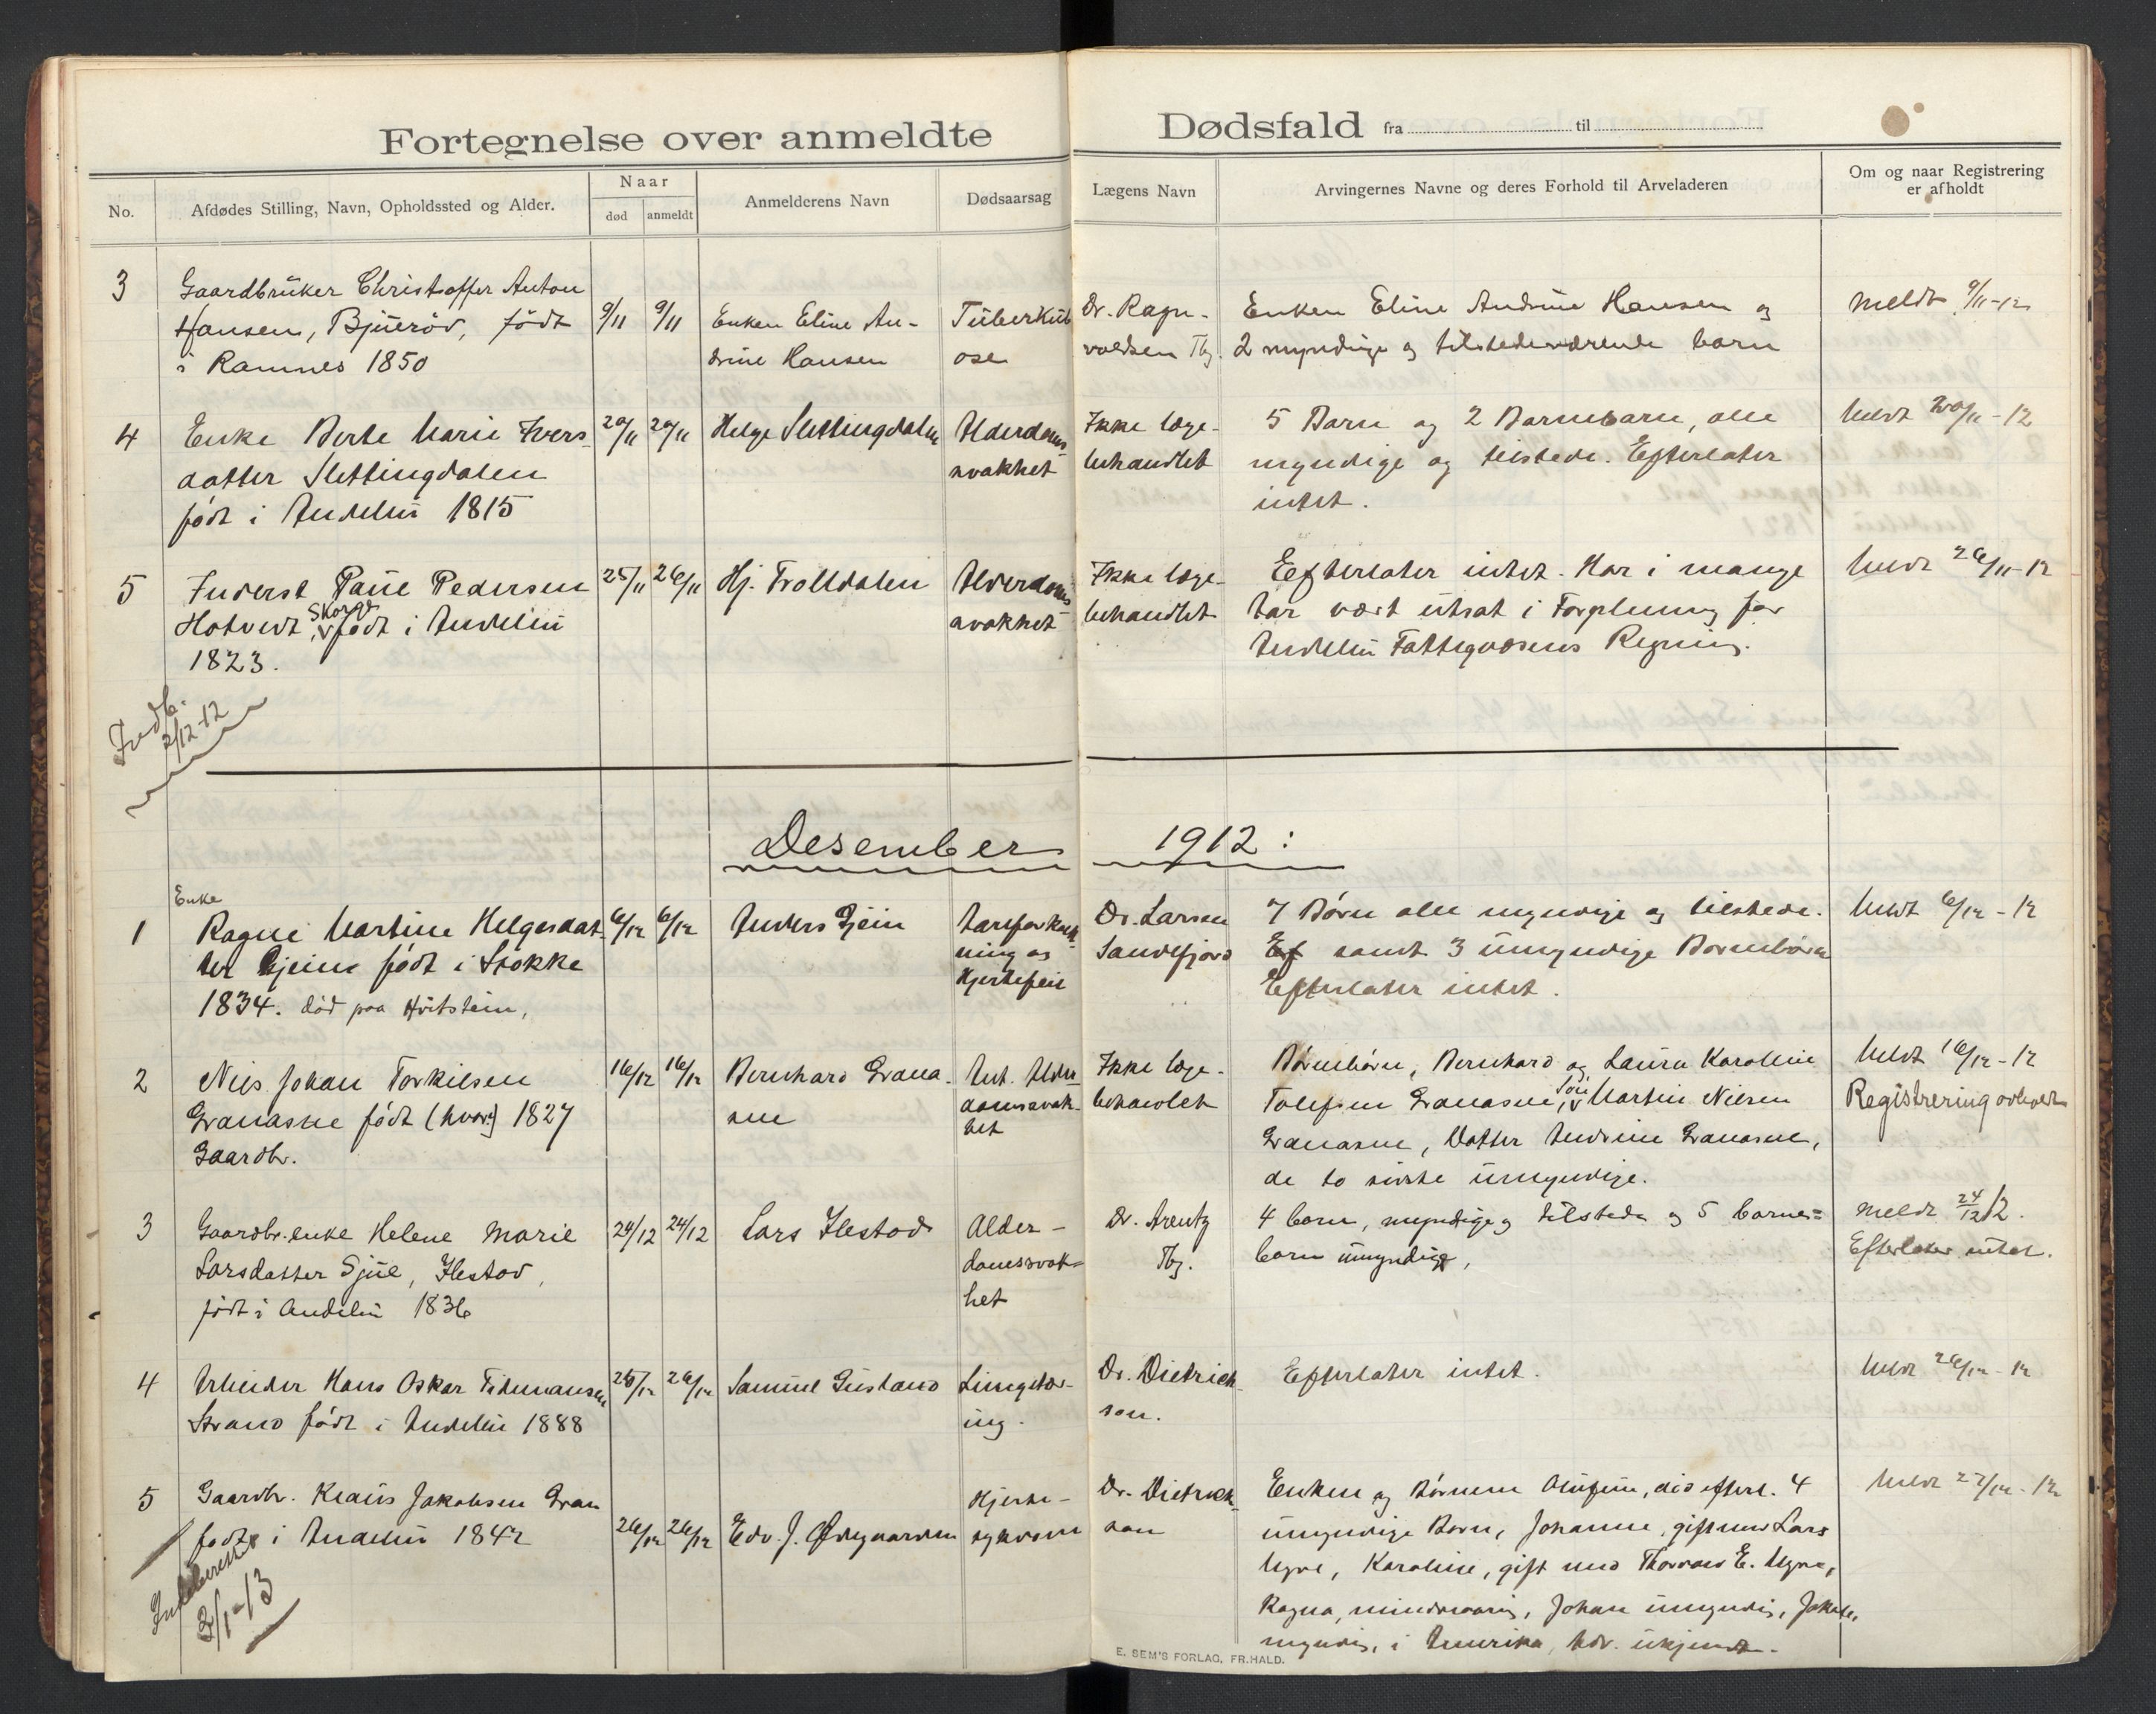 Fortegnelse over anmeldte Dødsfald fra til
No.
Afdødes Stilling, Navn, Opholdssted og Alder.
Naar
død anmeldt
Anmelderens Navn
Dødsaarsag
Lægens Navn
Arvingernes Navne og deres Forhold til Arveladeren
Om og naar Registrering
er afholdt
3
Gaardbruker Christoffer Anton
Hansen, Bjuerød, født
i Ramnes 1850
9/11 9/11
Enken Eline An-
drine Hansen
Tuberkul
ose
Dr. Ragn-
valdsen Tbg.
Enken Eline Andrine Hansen og
2 myndige og tilstedeværende barn
meldt 9/11-12
4
Enke Berte Marie Ivers-
datter Slettingdalen
født i Andebu 1815
20/11 20/11
Helge Slettingdalen
Alderdoms
svakhet
Ikke læge-
behandlet
5 Barn og 2 Barnebarn, alle
myndige og tilstede. Efterlater
intet.
Meldt 20/11-12
5
Inderst Paul Pedersen
Hotvedt, Skorge født i Andebu
1823.
25/11 26/11
Hj. Trolldalen
Alderdoms
svakhet
Ikke læge-
behandlet
Efterlater intet. Har i mange
Aar vært utsat i Forpleining for
Andebu Fattigvæsens Regning.
Meldt 26/11-12
Indb.
2/12-12
Desember 1912:
1
Enke
Ragne Martine Helgesdat-
ter Gjein født i Stokke
1834. død paa Hvitstein,
6/12 6/12
Anders Gjein
Aareforkalk-
ning og
Hjertefeil
Dr. Larsen
Sandefjord
7 Børn alle myndige og tilstede.
Ef samt 3 umyndige Barnebørn
Efterlater intet.
Meldt 6/12-12
2
Nils Johan Torkilsen
Granasne født (hvor?) 1827
Gaardbr.
16/12 16/12
Bernhard Grana-
sne
Ant. Alder-
domssvak-
het
Ikke læge-
behandlet
Børnebørn, Bernhard og Laura Karoline
Tolefsen Granasne, Søn Martin Nilsen
Granasne, Datter Andrine Granasne,
de to sidste umyndige.
Meldt 16/12-12
Registrering avholdt
3
Gaardbr.enke Helene Marie
Larsdatter Sjue, Ilestad,
født i Andebu 1836
24/12 24/12
Lars Ilestad
Alder-
domssvak=
het
Dr. Arentz
Tbg.
4 barn, myndige og tilstede og 5 barne=
barn umyndige,
Meldt 24/12 12.
Efterlater intet.
4
Arbeider Hans Oskar Tidemansen
Strand født i Andebu 1888
26/12 26/12
Samuel Gustavsd
Lungetær-
ing.
Dr. Dietrich-
son.
Efterlater intet.
Meldt 26/12-12
5
Gaardbr. Klaus Jakobsen Gran
født i Andebu 1842
26/12 26/12
Edv. J. Ødegaarden
Hjerte-
sykdom
Dr. Dietrich-
son
Enken og Børnene Olufine, død efterl. 4
umyndige Barn, Johanne, gift med Lars
Myre, Karoline, gift med Thorvald E. Myre,
Ragna, mindreaarig, Johan umyndig, Jakob,
myndig, i Amerika, Adr. ukjendt.
Meldt 27/12-12
Indberettet
2/1-13
E. SEM'S FORLAG, FR.HALD.